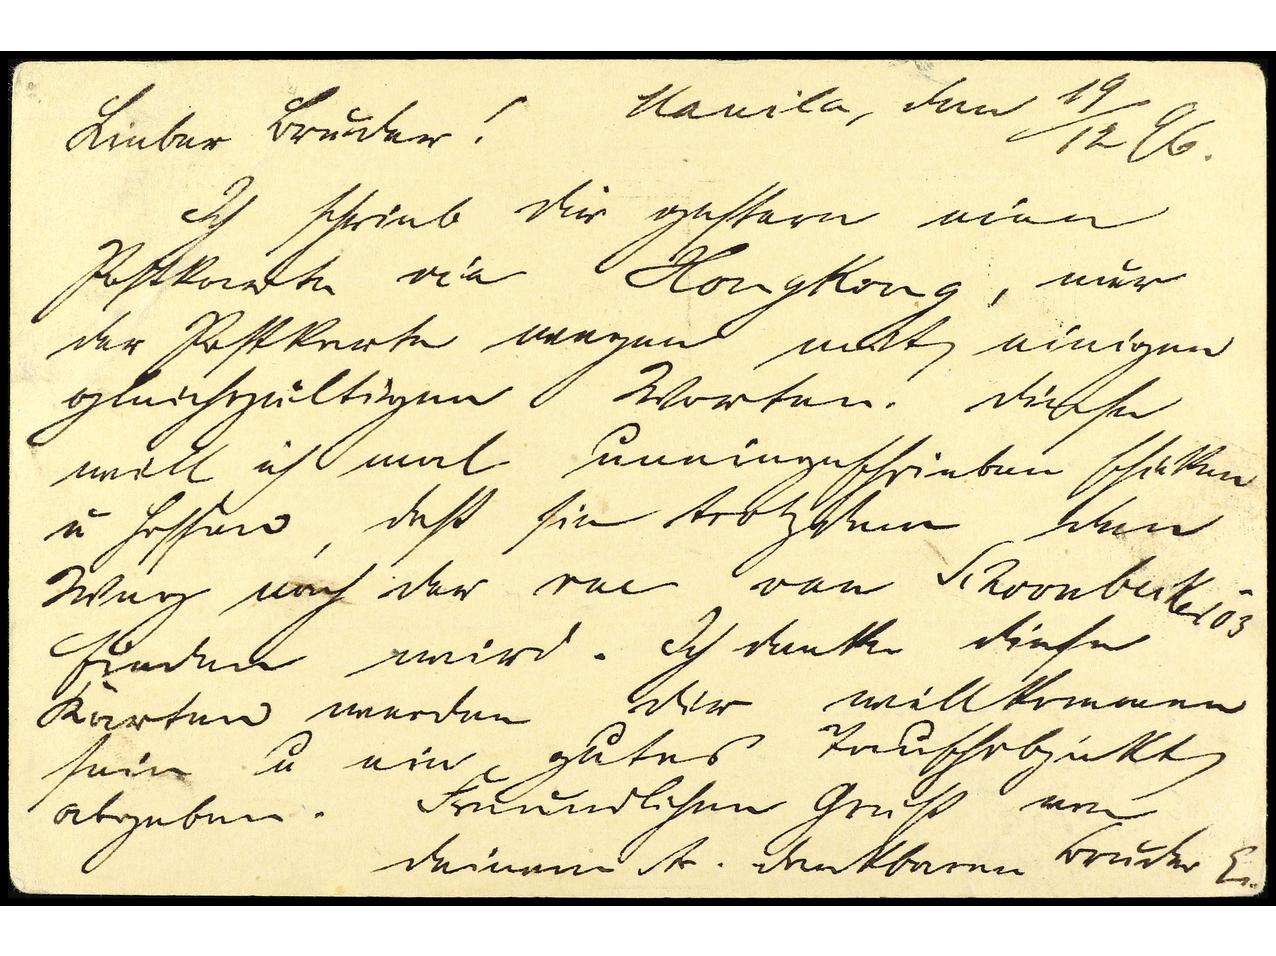 Manila, den 19/12 96.
Lieber Bruder!
Ich schrieb dir gestern eine
Postkarte via HongKong, nur
der Postkarte wegen mit einigen
gleichgültigen Worten. Diese
will ich mal uneingeschrieben schicken
u hoffen, daß sie trotzdem den
Weg nach der rue van Schoonbeke 103
finden wird. Ich denke diese
Karten werden dir willkommen
sein u ein gutes Tauschobjekt
abgeben. Freundlichen Gruß von
deinem tr. dankbaren Bruder E.